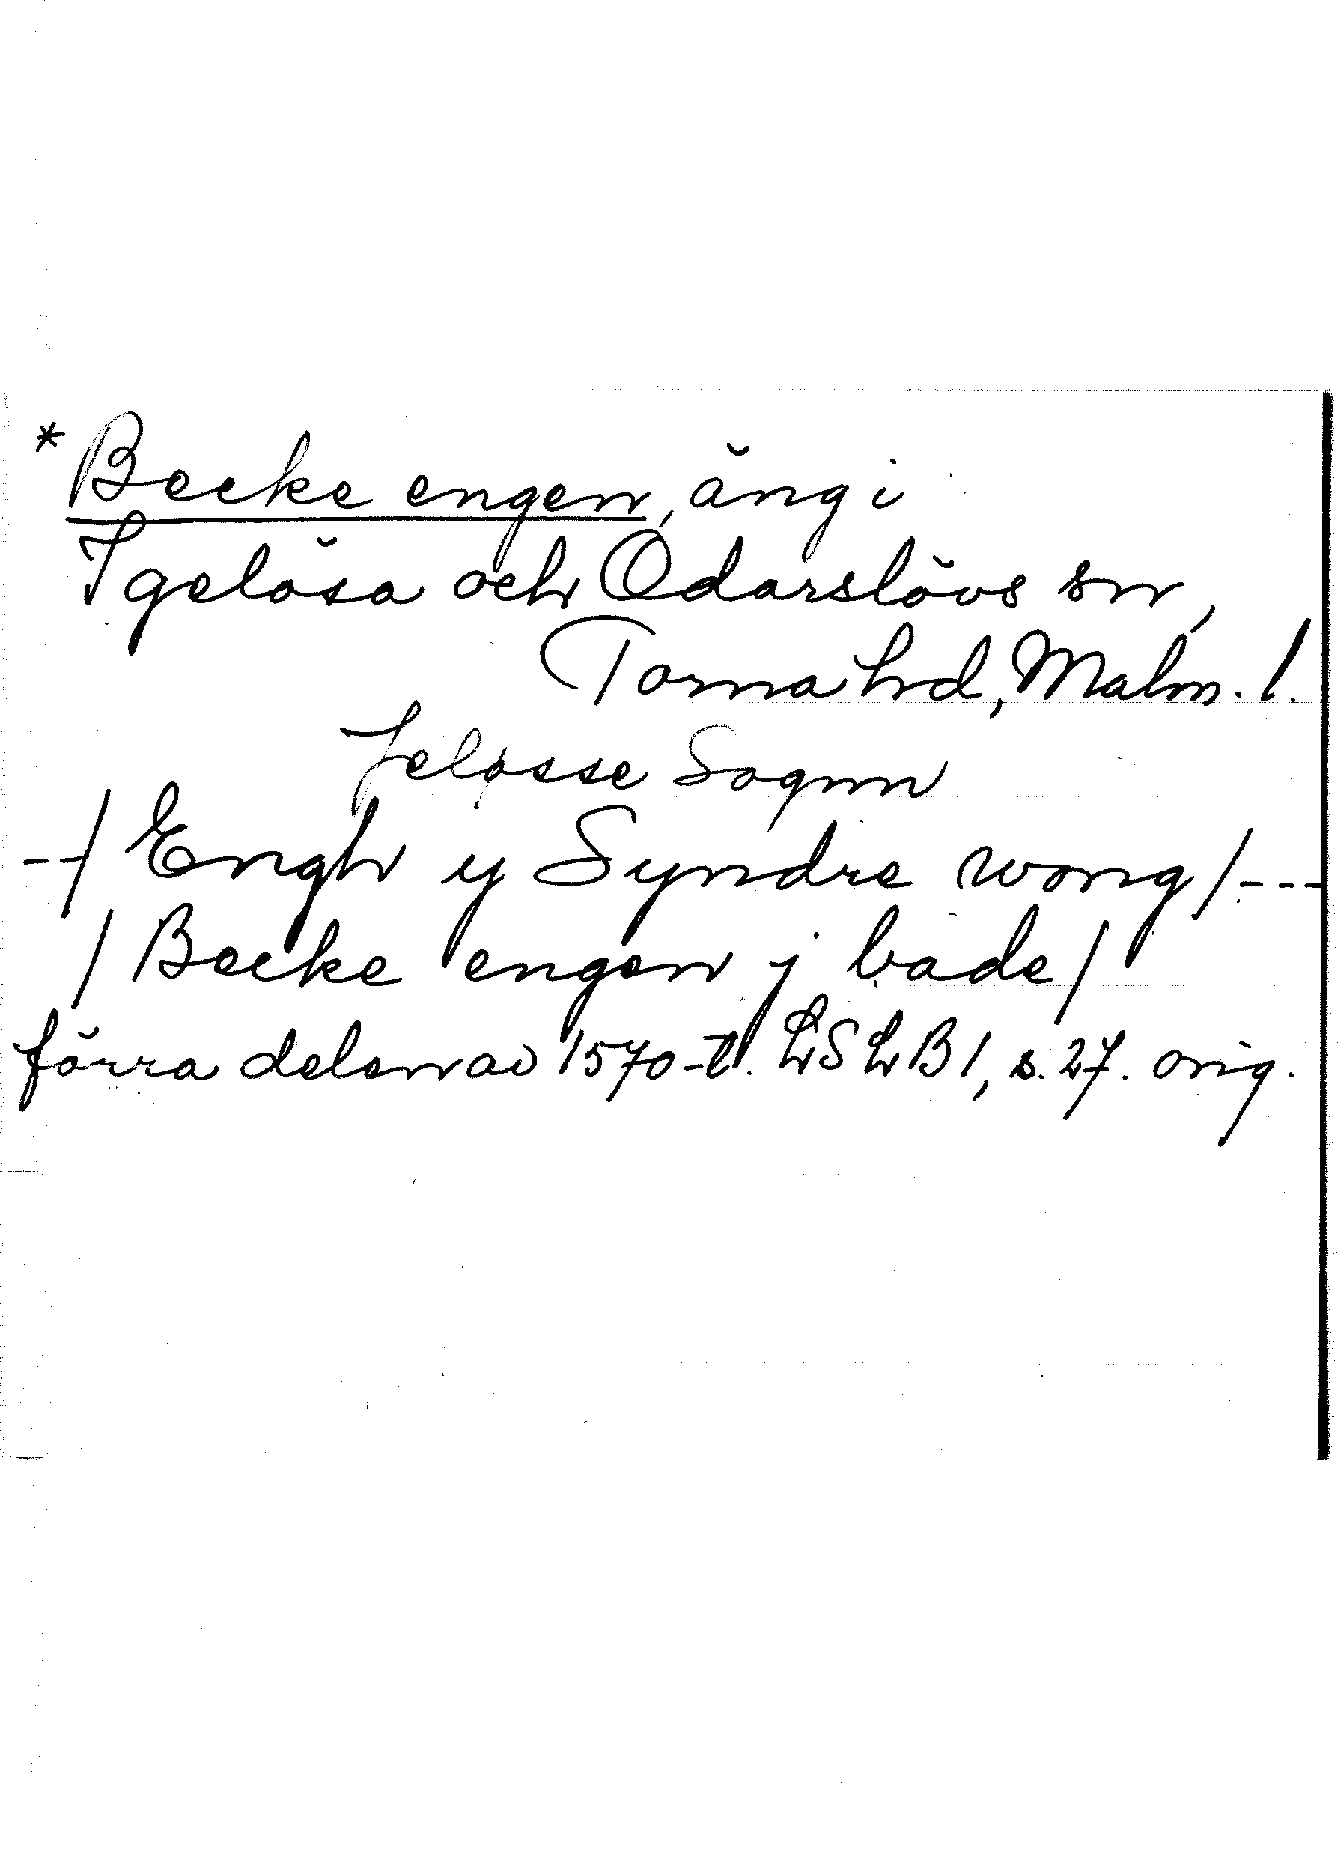 *Becke engen, äng i
Igelösa och Odarslövs snr,
Torna hrd, Malm. l.
Jeløsse Sognn
--/ Engh y Syndre wong/---
/ Becke engen j bade/
förra delen av 1570-t. LSLB1, s. 27. orig.